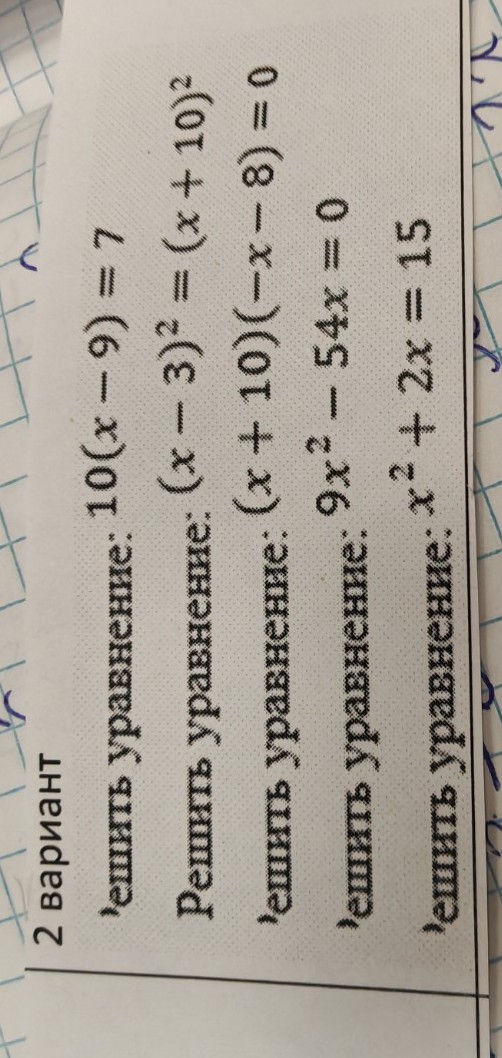 2 вариант
ешить уравнение: 10(x − 9) = 7
Решить уравнение: (x − 3)² = (x + 10)²
ешить уравнение: (x + 10)(−x − 8) = 0
ешить уравнение: 9x² − 54x = 0
ешить уравнение: x² + 2x = 15